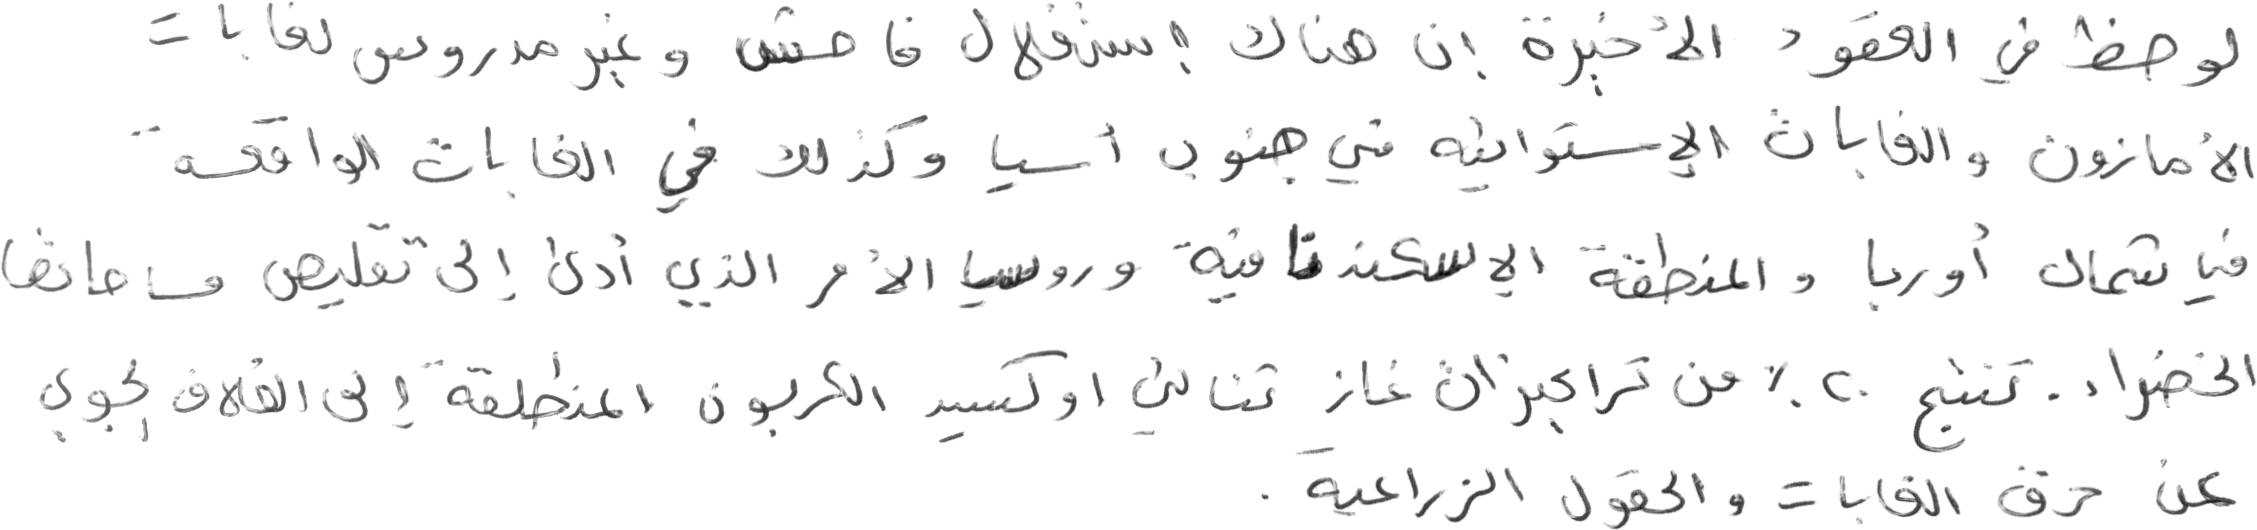 لوحظ في العقود الأخيرة إن هناك إستغلال فاحش وغير مدروس لغابات
الأمازون والغابات الإستوائيه في جنوب أسيا وكذلك في الغابات الواقعة
في شمال أوربا والمنطقة الإسكندنافية وروسيا الأمر الذي أدى إلى تقليص مساحاتها
الخضراء. تنتج ٢٠٪ من تراكيز ان غاز ثنائي اوكسيد الكربون المنطلقة إلى الغلاف الجوي
عن حرق الغابات والحقول الزراعية.